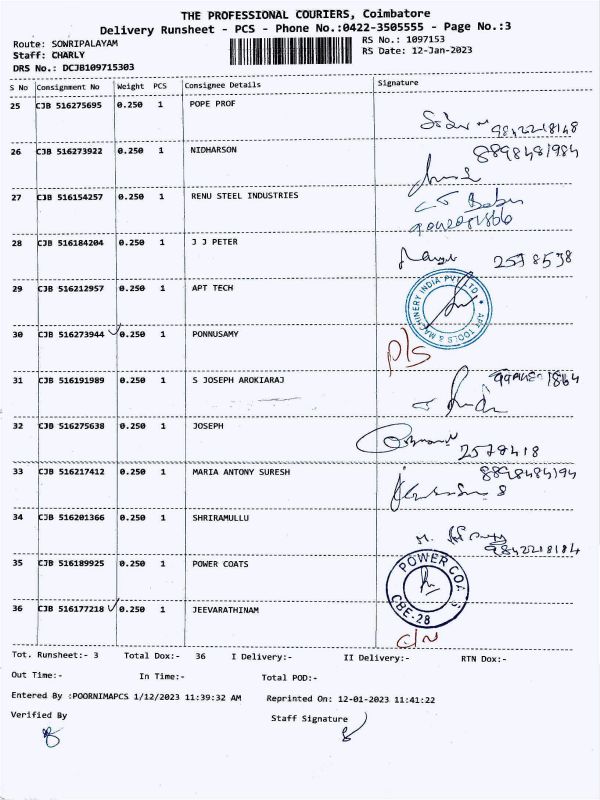 THE PROFESSIONAL COURIERS, Coimbatore
Delivery Runsheet - PCS - Phone No.:0422-3505555 - Page No.:3
Route: SOWRIPALAYAM
RS No.: 1097153
Staff: CHARLY
RS Date: 12-Jan-2023
DRS No.: DCJB109715303
S No Consignment No Weight PCS Consignee Details Signature
25 CJB 516275695 0.250 1 POPE PROF
9842218148
26 CJB 516273922 0.250 1 NIDHARSON 8898481984
27 CJB 516154257 0.250 1 RENU STEEL INDUSTRIES
Babu
28 CJB 516184204 0.250 1 J J PETER
2578538
29 CJB 516212957 0.250 1 APT TECH
APT TOOLS & MACHINERY INDIA PVT LTD
30 CJB 516273944 0.250 1 PONNUSAMY
P/S
31 CJB 516191989 0.250 1 S JOSEPH AROKIARAJ
32 CJB 516275638 0.250 1 JOSEPH
2578418
33 CJB 516217412 0.250 1 MARIA ANTONY SURESH 8898484194
34 CJB 516201366 0.250 1 SHRIRAMULLU
M.
9842218184
35 CJB 516189925 0.250 1 POWER COATS
POWER COATS
CBE-28
36 CJB 516177218 0.250 1 JEEVARATHINAM
C/N
Tot. Runsheet:- 3 Total Dox:- 36 I Delivery:- II Delivery:- RTN Dox:-
Out Time:- In Time:- Total POD:-
Entered By :POORNIMAPCS 1/12/2023 11:39:32 AM Reprinted On: 12-01-2023 11:41:22
Verified By
Staff Signature